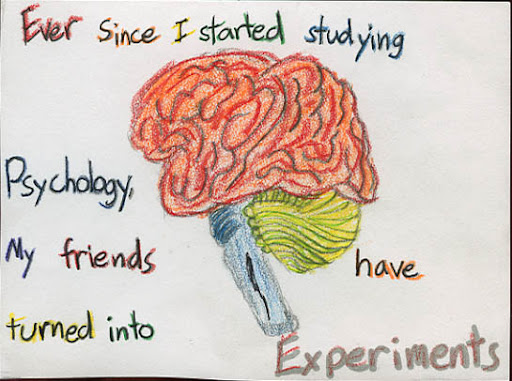 Ever Since I started studying
Psychology,
My friends have
turned into
Experiments